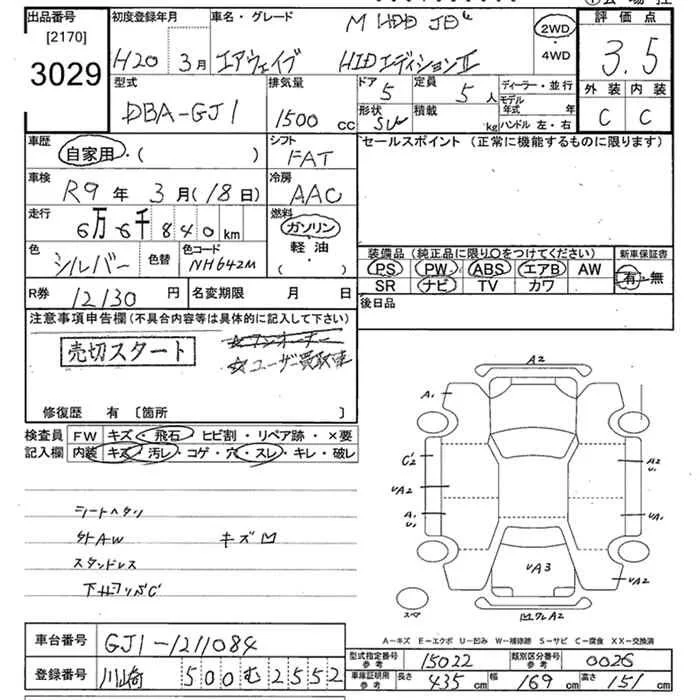 出品番号 [2170] 3029
初度登録年月 H20 3月
車名・グレード エアウェイブ M HDD HIDエディションⅡ
2WD・4WD
評価点 3.5
外装 C 内装 C
型式 DBA-GJ1
排気量 1500 cc
ドア 5
定員 5 人
形状 積載 kg
ディーラー・並行
モデル年式 年
ハンドル 左・右
車歴 自家用・( )
シフト FAT
セールスポイント (正常に機能するものに限ります)
車検 R9年3月(18日)
冷房 AAC
走行 6万6千840km
燃料 ガソリン・軽油・( )
色 シルバー 色替 色コード NH642M
装備品 (純正品に限り○をつけてください) 新車保証書
PS PW ABS エアB AW 有・無
SR ナビ TV カワ
R券 12130 円 名変期限 月 日
後日品
注意事項申告欄 (不具合内容等は具体的に記入して下さい)
売切スタート
☆ワンオーナー
☆ユーザー買取車
修復歴 有 〔箇所 〕
検査員記入欄
FW キズ・飛石・ヒビ割・リペア跡・×要
内装 キズ・汚レ・コゲ・穴・スレ・キレ・破レ
シートヘタリ
外AW キズ
スタッドレス
A2
A1
C2
A2
U1
UA2
A1
U1
UA1
UA3
UA2
スペア
A2
A-キズ E-エクボ U-凹み W-補修跡 S-サビ C-腐食 XX-交換済
車台番号 GJ1-1211084
型式指定番号 参考 15022 類別区分番号 参考 0026
登録番号 川崎 500 む 2552
車庫証明用 参考 長さ 435 cm 幅 169 cm 高さ 151 cm